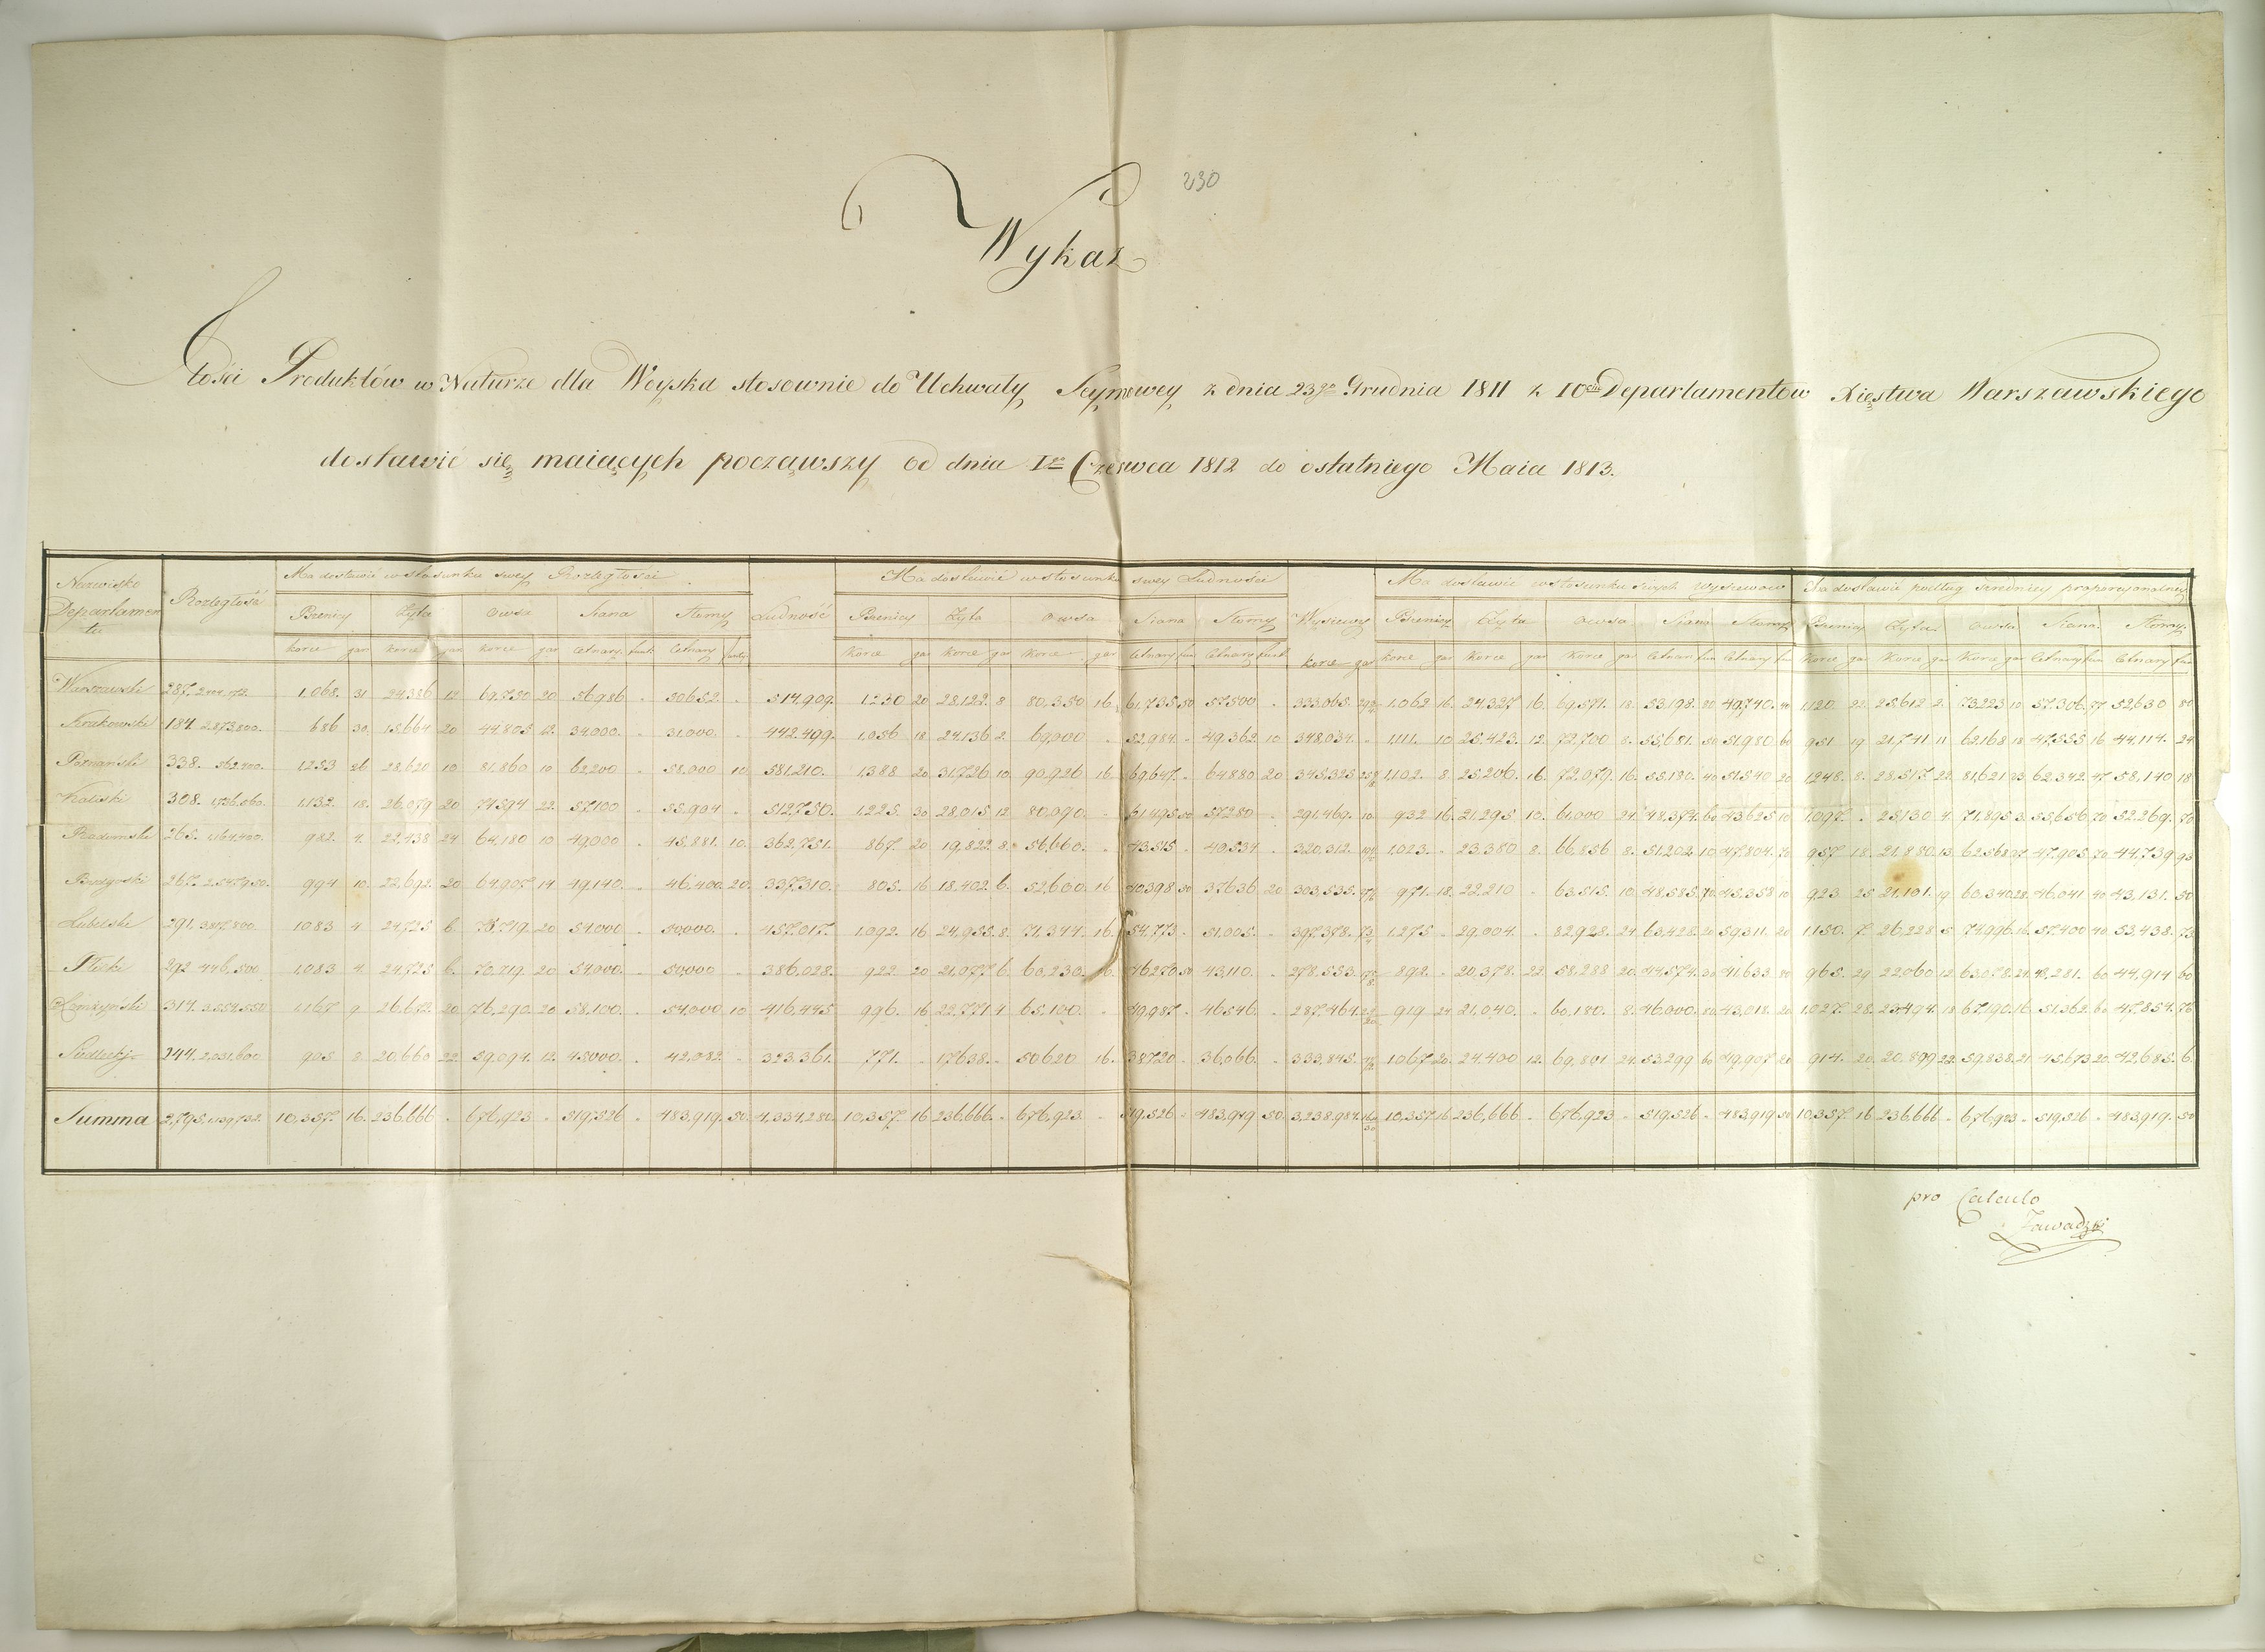 230
Wykaz
Ilości Produktów w Naturze dla Woyska stosownie do Uchwały Seymowey z dnia 23go Grudnia 1811 z 10ciu Departamentów Xięstwa Warszawskiego
dostawić się maiących począwszy od dnia 1go Czerwca 1812 do ostatniego Maia 1813.
Nazwisko Departamentu Rozległość Ma dostawić w stosunku swey Rozległości Ludność Ma dostawić w stosunku swey Ludności Wysiewy Ma dostawić w stosunku swych wysiewów Ma dostawić podług średniey proporcyonalney
Pszenicy Żyta Owsa Siana Słomy Pszenicy Żyta Owsa Siana Słomy Pszenicy Żyta Owsa Siana Słomy Pszenicy Żyta Owsa Siana Słomy
korce gar korce gar korce gar Cetnary funt Cetnary funt Korce gar korce gar Korce gar Cetnary fun Cetnary funt korce gar korce gar Korce gar Korce gar Cetnar fun Cetnary fun Korce gar Korce gar Korce gar Cetnary fun Cetnary fun
Warszawski 287. 1,068. 31 24,386 12 69,750 20 56,986 30,652. 514,909. 1230 20 28,122. 8 80,350 16 61,735 50 57,500 333,665. 1,062 16. 24,327 16. 69,571. 18. 53,192. 80 49,740. 1,120. 22. 25,612 2. 73,223 10 57,306. 77 52,630 80
Krakowski 184. 2,873,800. 686 30. 15,664 20 44,805 12. 34,000. 31,000. 442,499. 1,056 18 24,136 2. 69,000 52,984. 49,362. 10 348,034. 1,111. 10 25,423. 12. 72,700 8. 55,681. 50 51,980 60 951. 19 21,741 11 62,168 18 47,555 16 44,114. 24
Poznański 338. 562,400. 1,253 26 28,620 10 81,860 10 62,200 58,000 10 581,210. 1,388 20 31,726 10. 90,926 16 69,647. 64,880 20 345,325 1,102. 8. 25,206. 16. 72,079. 16. 55,190. 40 51,540 20 1,248. 8. 28,517 22. 81,621 23 62,342. 47 58,140 18
Kaliski 308. 1,726,060. 1,132. 18. 26,079 20 74,594 22. 57,100 55,904 512,750. 1,225. 30 28,015 12. 80,090. 61,495 50 57,280 291,469. 10 932 16. 21,295 10. 61,000 24. 48,374. 60 43,625 10 1,097. 25,130 4. 71,895 3. 55,656. 70 52,269. 70
Radomski 265. 1,164,400. 982. 4. 22,438 24 64,180 10 49,000 45,881. 10. 362,751. 867. 20 19,822. 8. 56,660. 43,515 40,534 320,312. 1,023. 23,380 8. 66,856 8. 51,202 10 47,804. 70 957. 18. 21,880. 13 62,568 47,905. 70 44,739 93
Bydgoski 267. 2,547,950. 994 10. 22,692. 20 64,907 14 49,140. 46,400. 20. 337,310. 805. 16 18,402. 6. 52,600. 16 40,398 50 37,636 20 303,535. 971. 18. 22,210 63,515. 10 48,585. 70. 45,358 10 923 25 21,101. 19 60,340 28 46,041 40 43,131. 50
Lubelski 291. 3,817,800. 1083 4 24,725 6. 70,719. 20 54,000 50,000. 457,017. 1,092. 16 24,955. 8. 71,344. 16. 54,773 51,005. 397,378. 1,275 29,004. 82,928. 24 63,428. 20 59,311. 20 1,150. 7 26,228 5 74,996. 16. 57,400 40 53,438. 73
Płocki 292 446,500 1,083 4. 24,725 6. 70,719. 20 54,000. 50,000 386,028. 922. 20 21,077 6. 60,230. 46,270 50 43,110. 278,553. 892. 20,378. 22. 58,288 20. 44,574. 30 41,633 80 965. 29 22,060 12. 63,078. 24 48,281. 60 44,914 60
Łomżyński 314. 3,554,550 1,167 9. 26,672. 20 76,290. 20 58,100. 54,000 10 416,445 996. 16 22,771 4 65,100. 49,987. 46,546 287,464. 919 24 21,040. 60,180. 8. 46,000. 80 43,018. 20 1,027. 28. 23,494. 13 67,190. 16 51,362. 60 47,854. 76
Siedlecki 244. 2,031,600 905 8. 20,660 22. 59,094. 12. 45,000. 42,082. 323,361. 771. 17,638. 50,620 16. 38,720 36,066. 333,845. 1067 20. 24,400 12. 69,801 24. 53,299 60 49,907 20 914. 20 20,899 22. 59,838. 21 45,673 20. 42,685. 6.
Summa 2,795. 1,139,732. 10,357. 16. 236,666 676,923 519,526 483,919. 50. 4,334,280. 10,357. 16 236,666. 676,923. 519,526 483,919 50. 3,238,984. 10,357. 16 236,666. 676,923 519,526 483,919 50 10,357. 16 236,666 676,923 519,526 483,919. 50
pro Calculo
Zawadzki